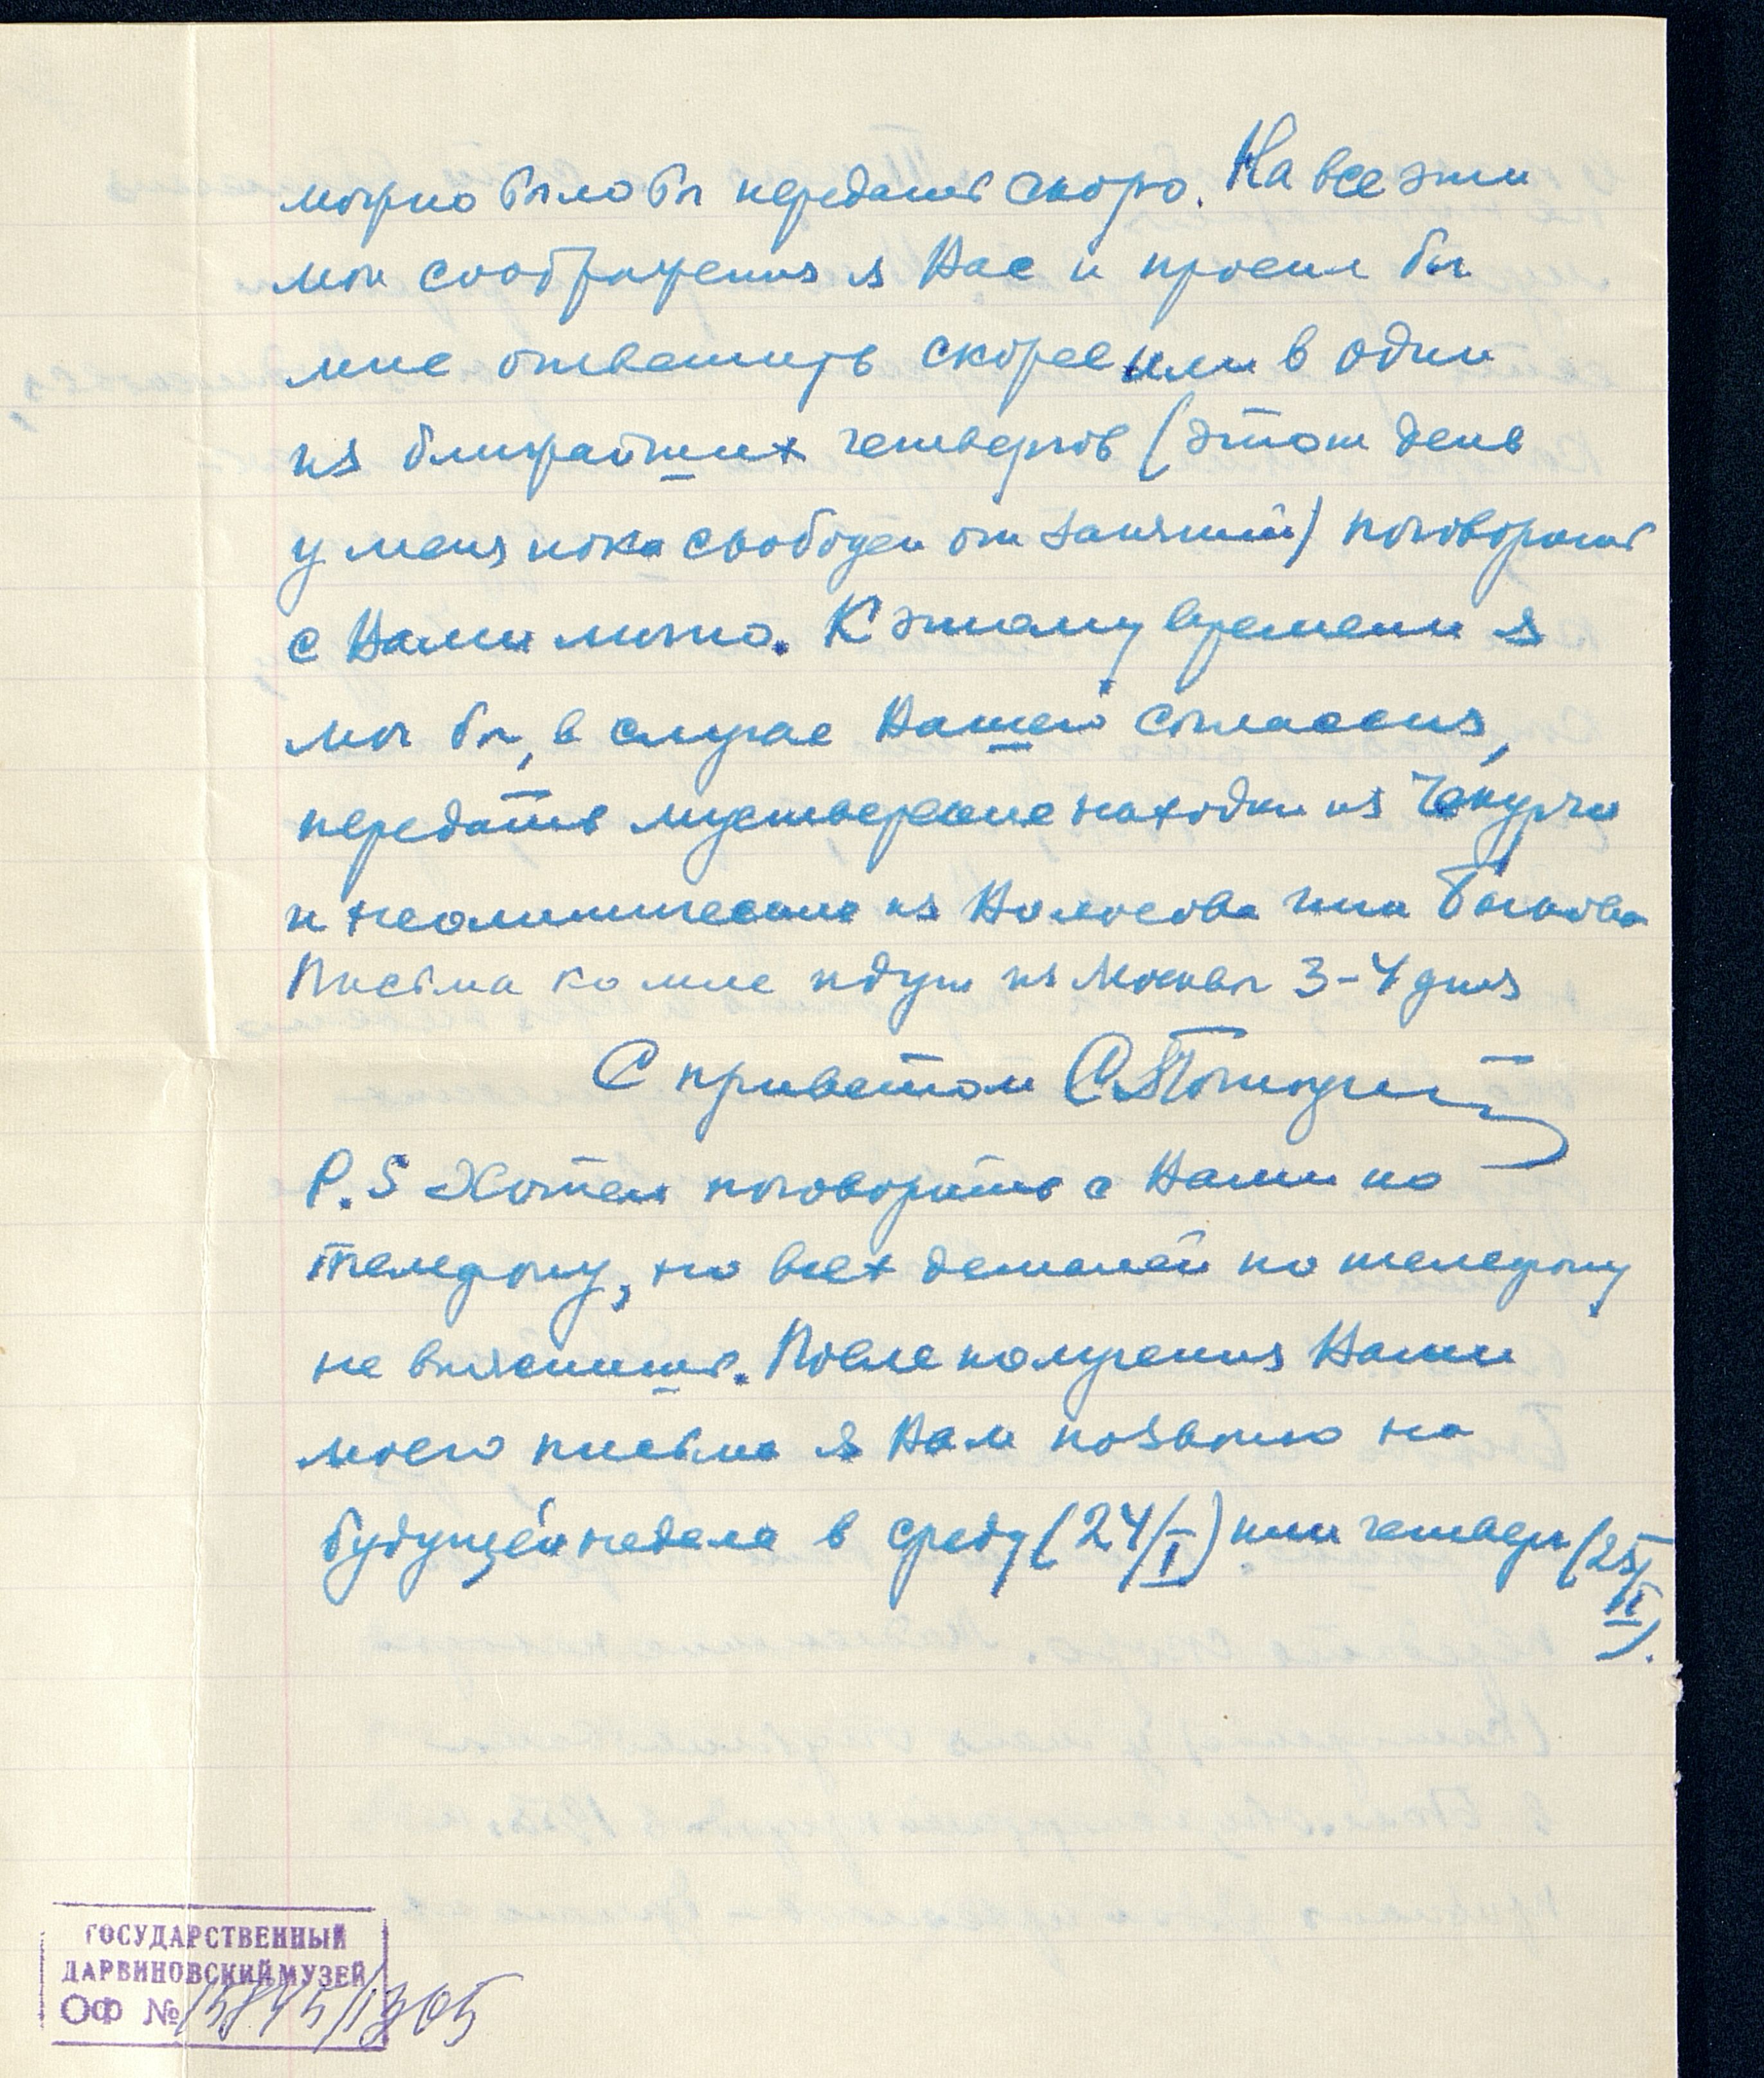 можно было бы передать скоро. На все эти
мои соображения я Вас и просил бы
мне ответить скорее или в один
из ближайших четвергов (этот день
у меня пока свободен от занятий) поговорить
с Вами лично. К этому времени я
мог бы, в случае Вашего согласия,
передать мустьерские находки из Чокурчи
и неолитические из Волосова или
Письма ко мне идут из Москвы 3-4 дня
С приветом
P.S Хотел поговорить с Вами по
телефону, но всех деталей по телефону
не выяснишь. После получения Вами
моего письма я Вам позвоню на
будущей неделе в среду (24/I) или четверг (25/
II).
ГОСУДАРСТВЕННЫЙ
ДАРВИНОВСКИЙ МУЗЕЙ
ОФ № 15845/1305